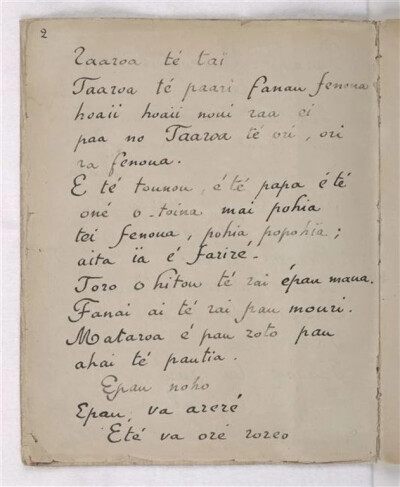 2
Taaroa té tai
Taaroa té paari fanau fenoua
hoaii hoaii noui raa ei
paa no Taaroa té ori, ori
ra fenoua.
E té tounou, é té papa é té
oné o-toina mai pohia
tei fenoua, pohia popohïa ;
aita ïa é fariré.
Toro o hitou té rai épau maua.
Fanai ai té rai pau mouri.
Mataroa é pau roto pau
ahai té pautia.
Epau noho
Epau va areré
Eté va oré roreo